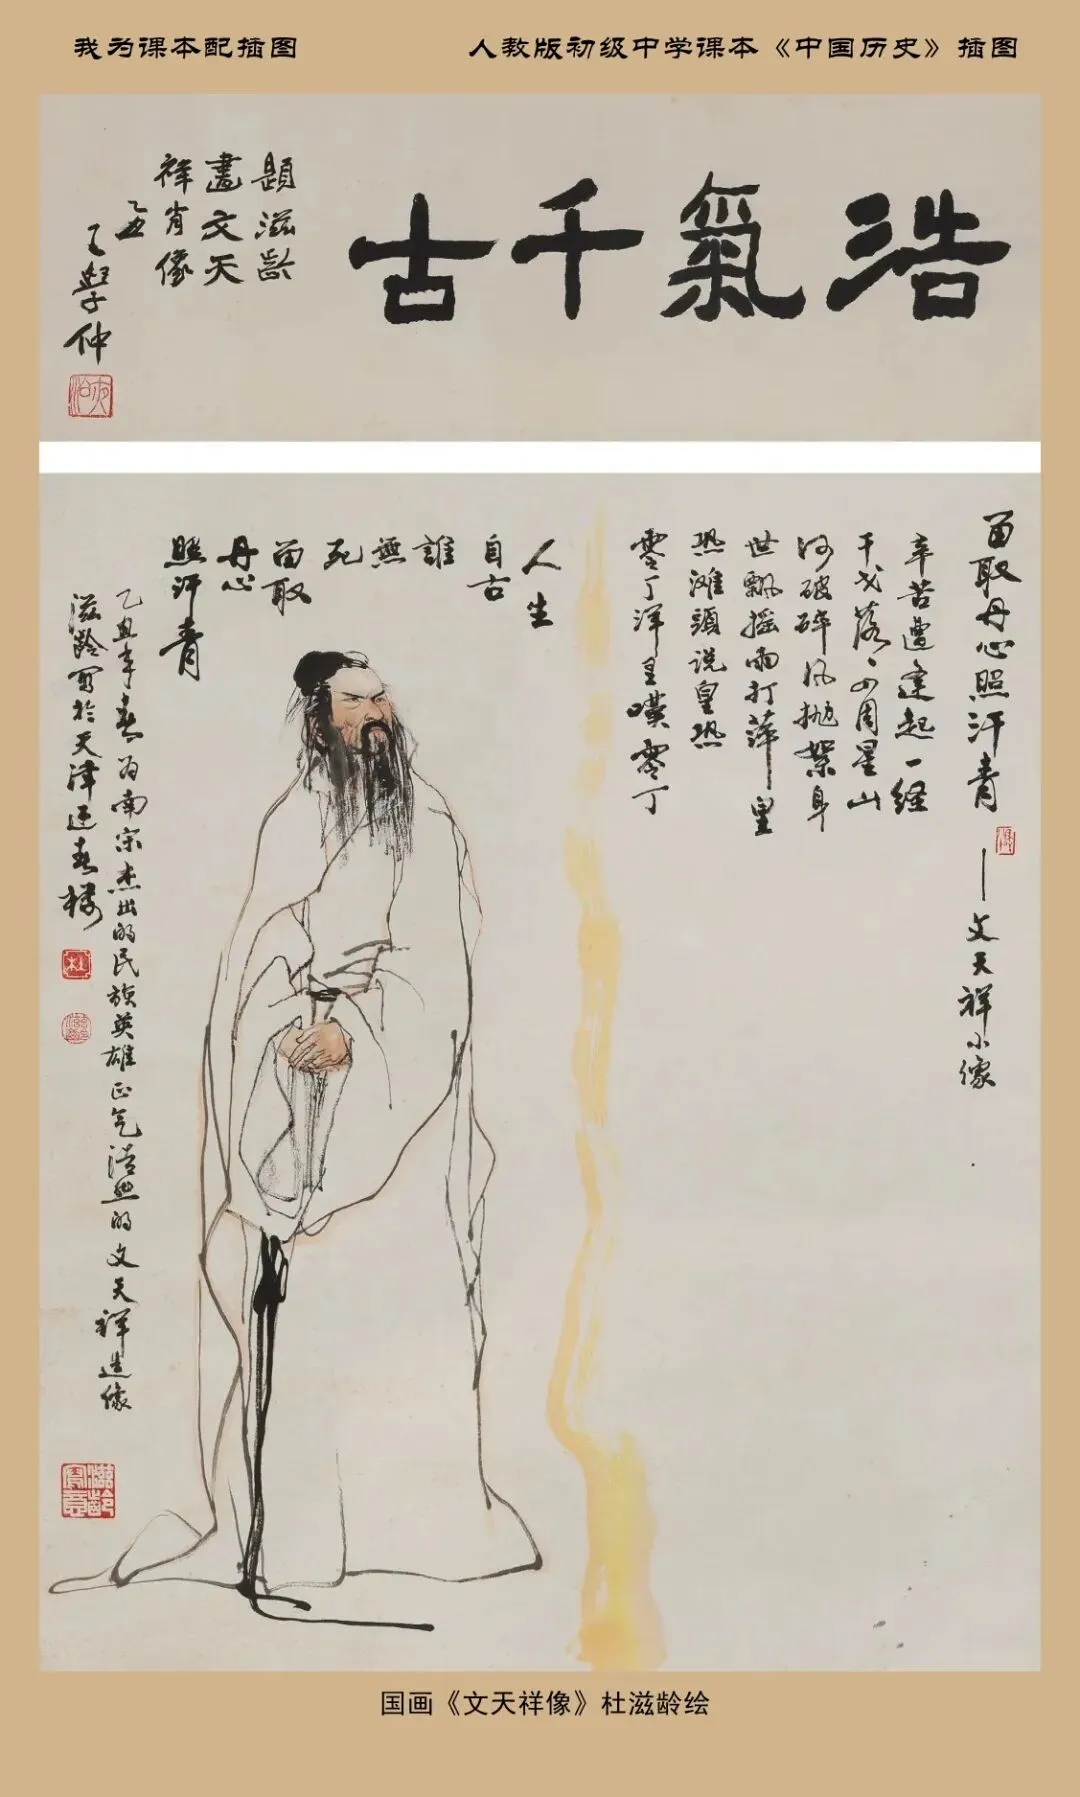 我为课本配插图
人教版初级中学课本《中国历史》插图
浩氣千古
題滋齡
畫文天
祥肖像
乙丑
王學仲
留取丹心照汗青
—文天祥小像
辛苦遭逢起一经
干戈落々四周星山
河破碎风抛絮身
世飘摇雨打萍皇
恐滩頭说皇恐
零丁洋里嘆零丁
人生
自古
誰
無
死
留取
丹心
照汗青
乙丑年春为南宋杰出的民族英雄正气浩然的文天祥造像
滋龄写於天津迎春楼
杜
国画《文天祥像》杜滋龄绘